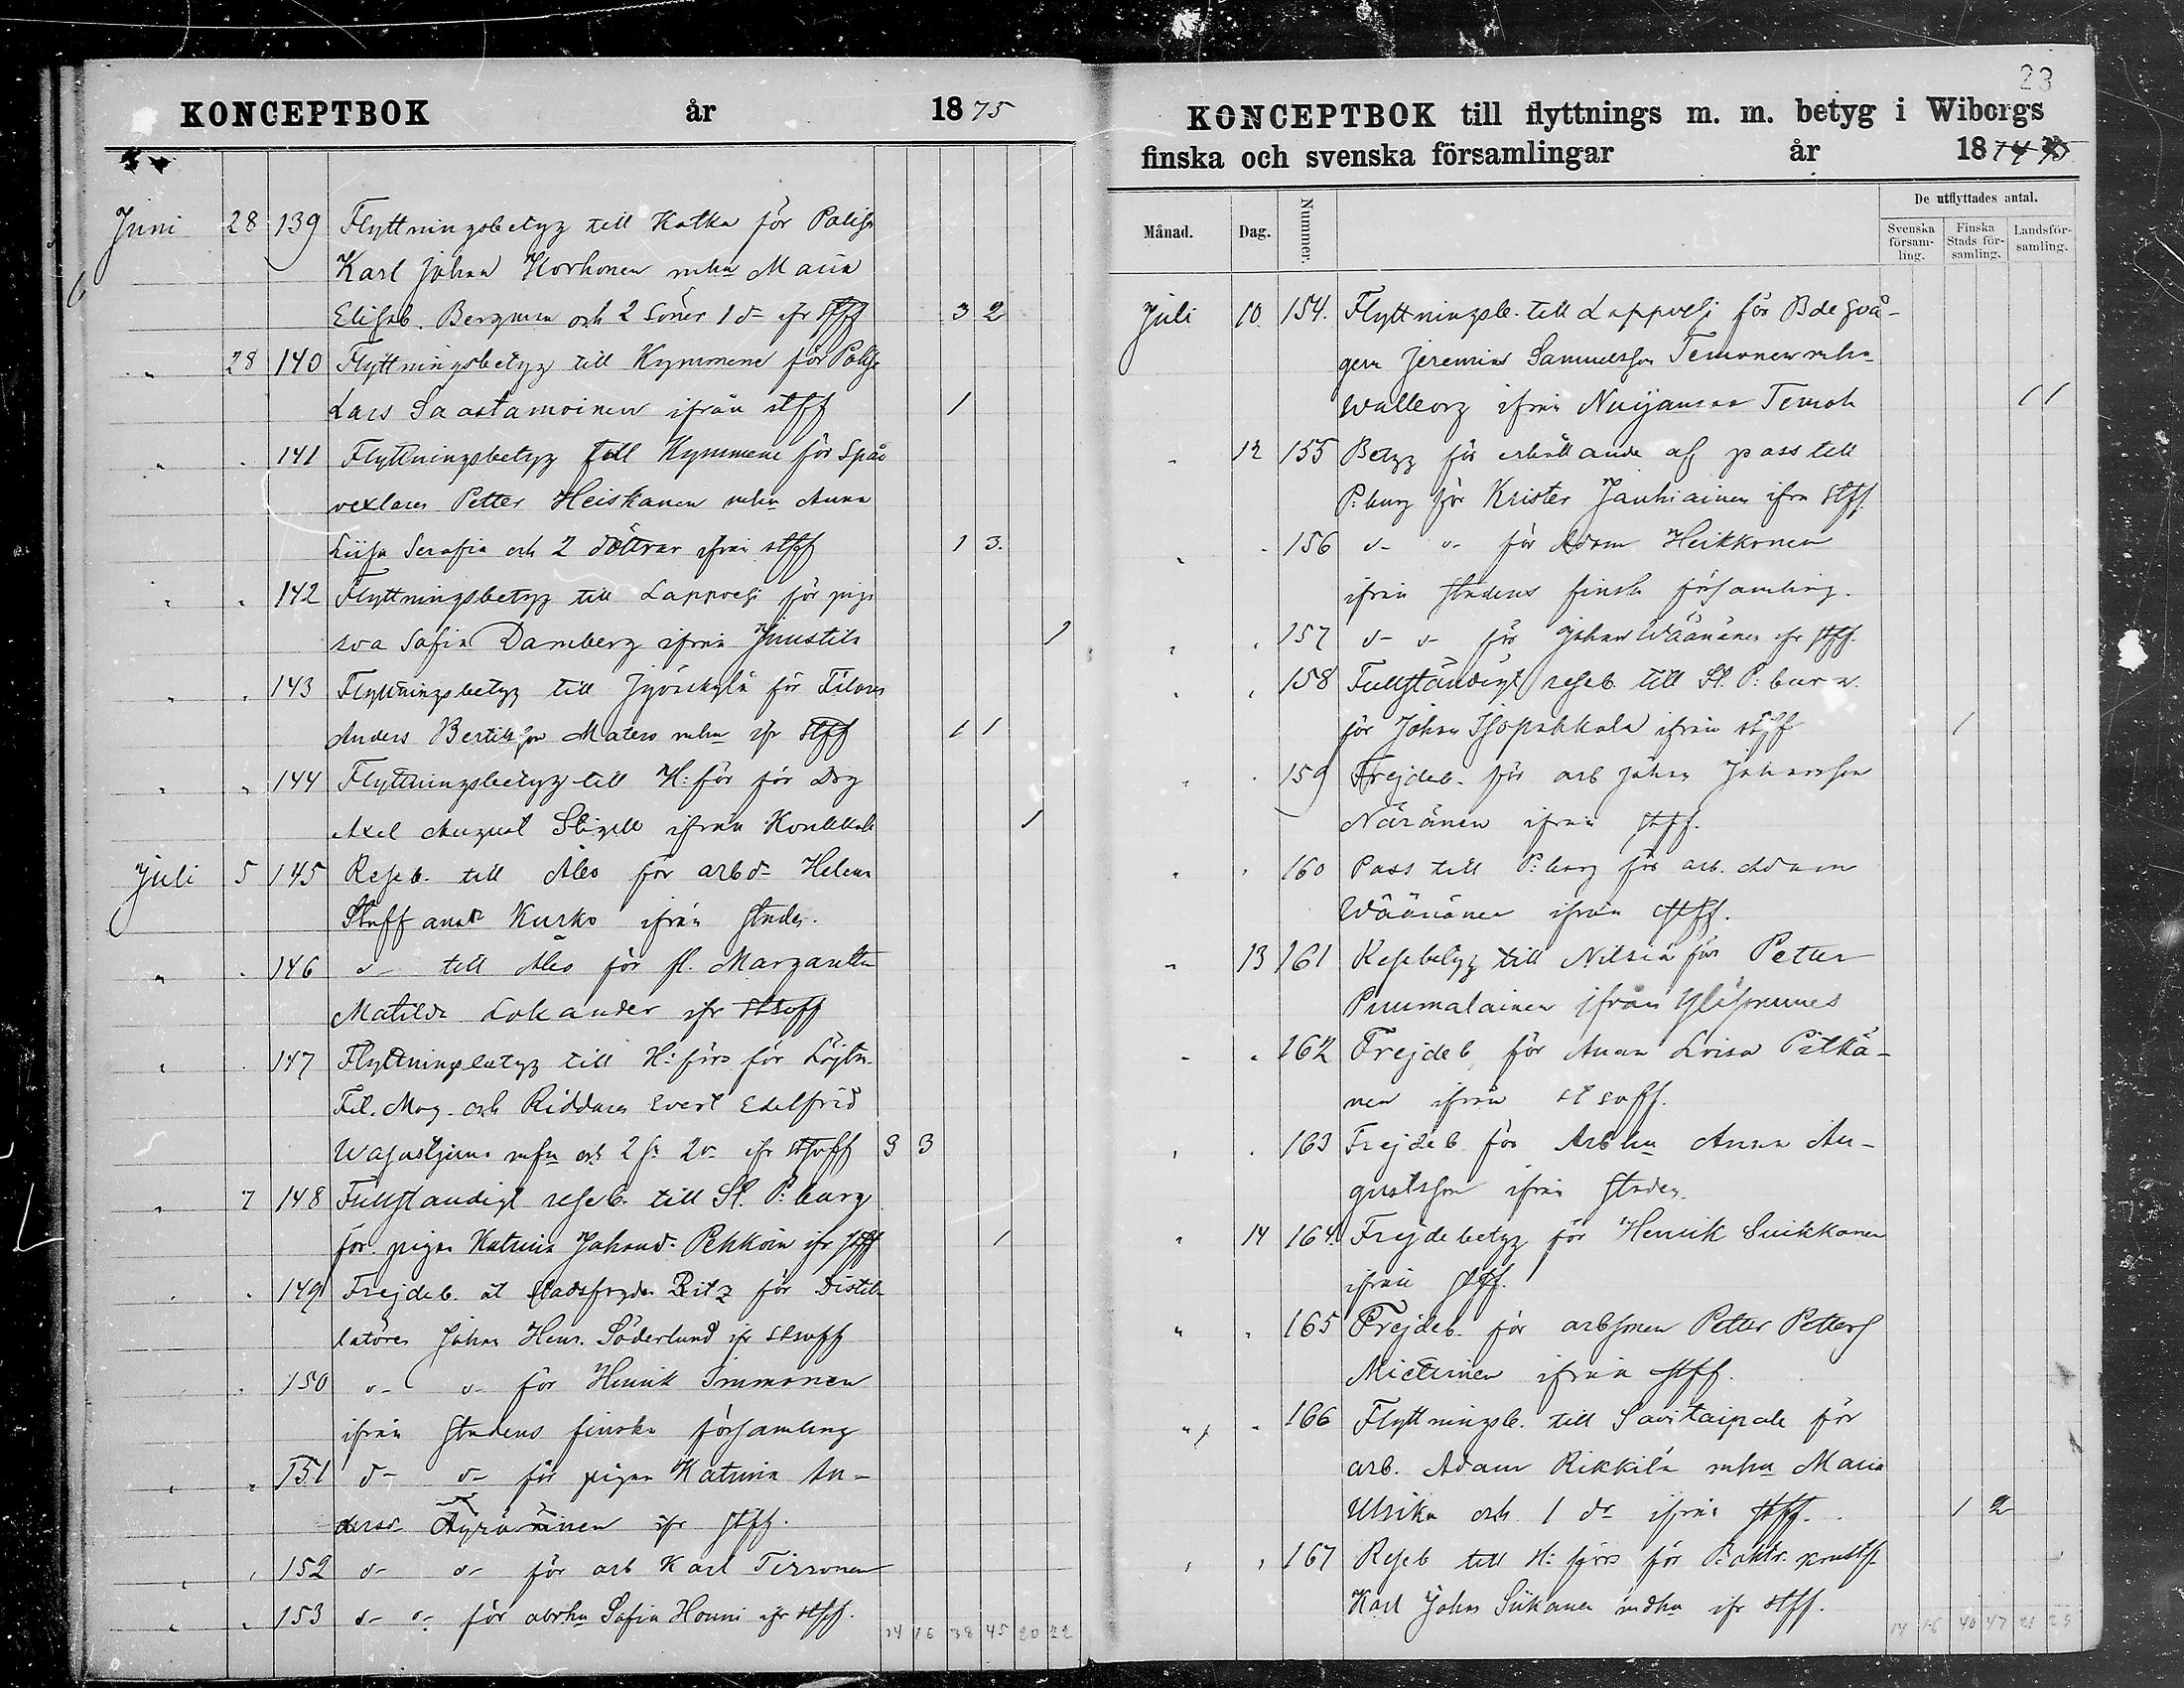 KONCEPTBOK år 1875
Juni 28 139 Flyttningsbetyg till Kotka för Polisen
Karl Johan Korhonen mhu Maria
Elisab. Bergman och 2 söner 1 dr ifr stff 3 2
" 28 140 Flyttningsbetyg till Kymmene för Polise
Lars Saastamoinen ifrån stff 1
" " 141 Flyttningsbetyg till Kymmene för Spår
vexlaren Petter Heiskanen mhu Anna
Liisa Serafia och 2 döttrar ifrån stff 1 3.
" " 142 Flyttningsbetyg till Lappvesi för piga
Eva Sofia Damberg ifrån Juustila 1
" " 143 Flyttningsbetyg till Jyväskylä för Filaren
Anders Bertilsson Matero mhu ifr stff 1 1
" " 144 Flyttningsbetyg till H:fors för Drg
Axel August Stigell ifrån 1
Juli 5 145 Reseb. till Åbo för arbd- Helena
Stoff ana Kurko ifrån staden.
" " 146 d- till Åbo för fl. Margaretha
Matilda Lokander ifr stsvff
" " 147 Flyttningsbetyg till H:fors för Löjtn.
Fil. Mag. och Riddaren Evert Edelfrid
mfu och 2 s. 2 d. ifr stsvff 3 3
" 7 148 Fullständigt reseb. till St. P:burg
för pigan Katrina Johansd. Pekkoin ifr stff 1
" " 149 Frejdeb. åt Ritz för Distil-
latören Johan Henr. Söderlund ifr stsvff
" " 150 d- d- för Henrik Immonen
ifrån stadens finska församling
" " 151 d- d- för pigan Katrina An-
dersd. ifr stff.
" " 152 d- d- för arb Karl Tirronen
" " 153 d- d- för arbhu Sofia Honni ifr stff.
14 16 38 45 20 22
23
KONCEPTBOK till flyttnings m. m. betyg i Wiborgs
finska och svenska församlingar år 1874 75
Månad. Dag. Nummer. De utflyttades antal.
Svenska församling. Finska Stads församling. Landsförsamling.
Juli 10 154. Flyttningsb. till Lappvesi för
Jeremias Samuelsson Temonen mhu
Wallborg ifrån Nuijamaa 1 1
" 12 155 Betyg för erhållande af pass till
P:burg för Krister Jauhiainen ifrn stff.
" " 156 d- d- för Adam Heikkonen
ifrån stadens finska församling.
" " 157 d- d- för Johan Wäänänen ifr stff.
" " 158 Fullständigt reseb. till St. P:burg.
för Johan Isopahkala ifrån stff 1
" " 159 Frejdeb. för arb Johan Johansson
Näränen ifrån stff.
" " 160 Pass till P:burg för arb. Adam
Wäänänen ifrån stff.
" 13 161 Resebetyg till Nilsiä för Petter
Puumalainen ifrån
" " 162 Frejdeb. för Anna Lovisa Pitkä-
nen ifrån stsvff.
" " 163 Frejdeb. för Arbhu Anna Au-
gustsson ifrån staden.
" 14 164. Frejdebetyg för Henrik Suikkanen
ifrån stff.
" " 165 Frejdeb. för arbsonen Petter Petters
Miettinen ifrån stff.
" " 166 Flyttningsb. till Savitaipale för
arb. Adam Rikkilä mhu Maria
Ulrika och 1 dr ifrån stff. 1 2
" " 167 Reseb till H:fors för
Karl Johan Siikanen mdhu ifr stff.
14 16 40 47 21 23